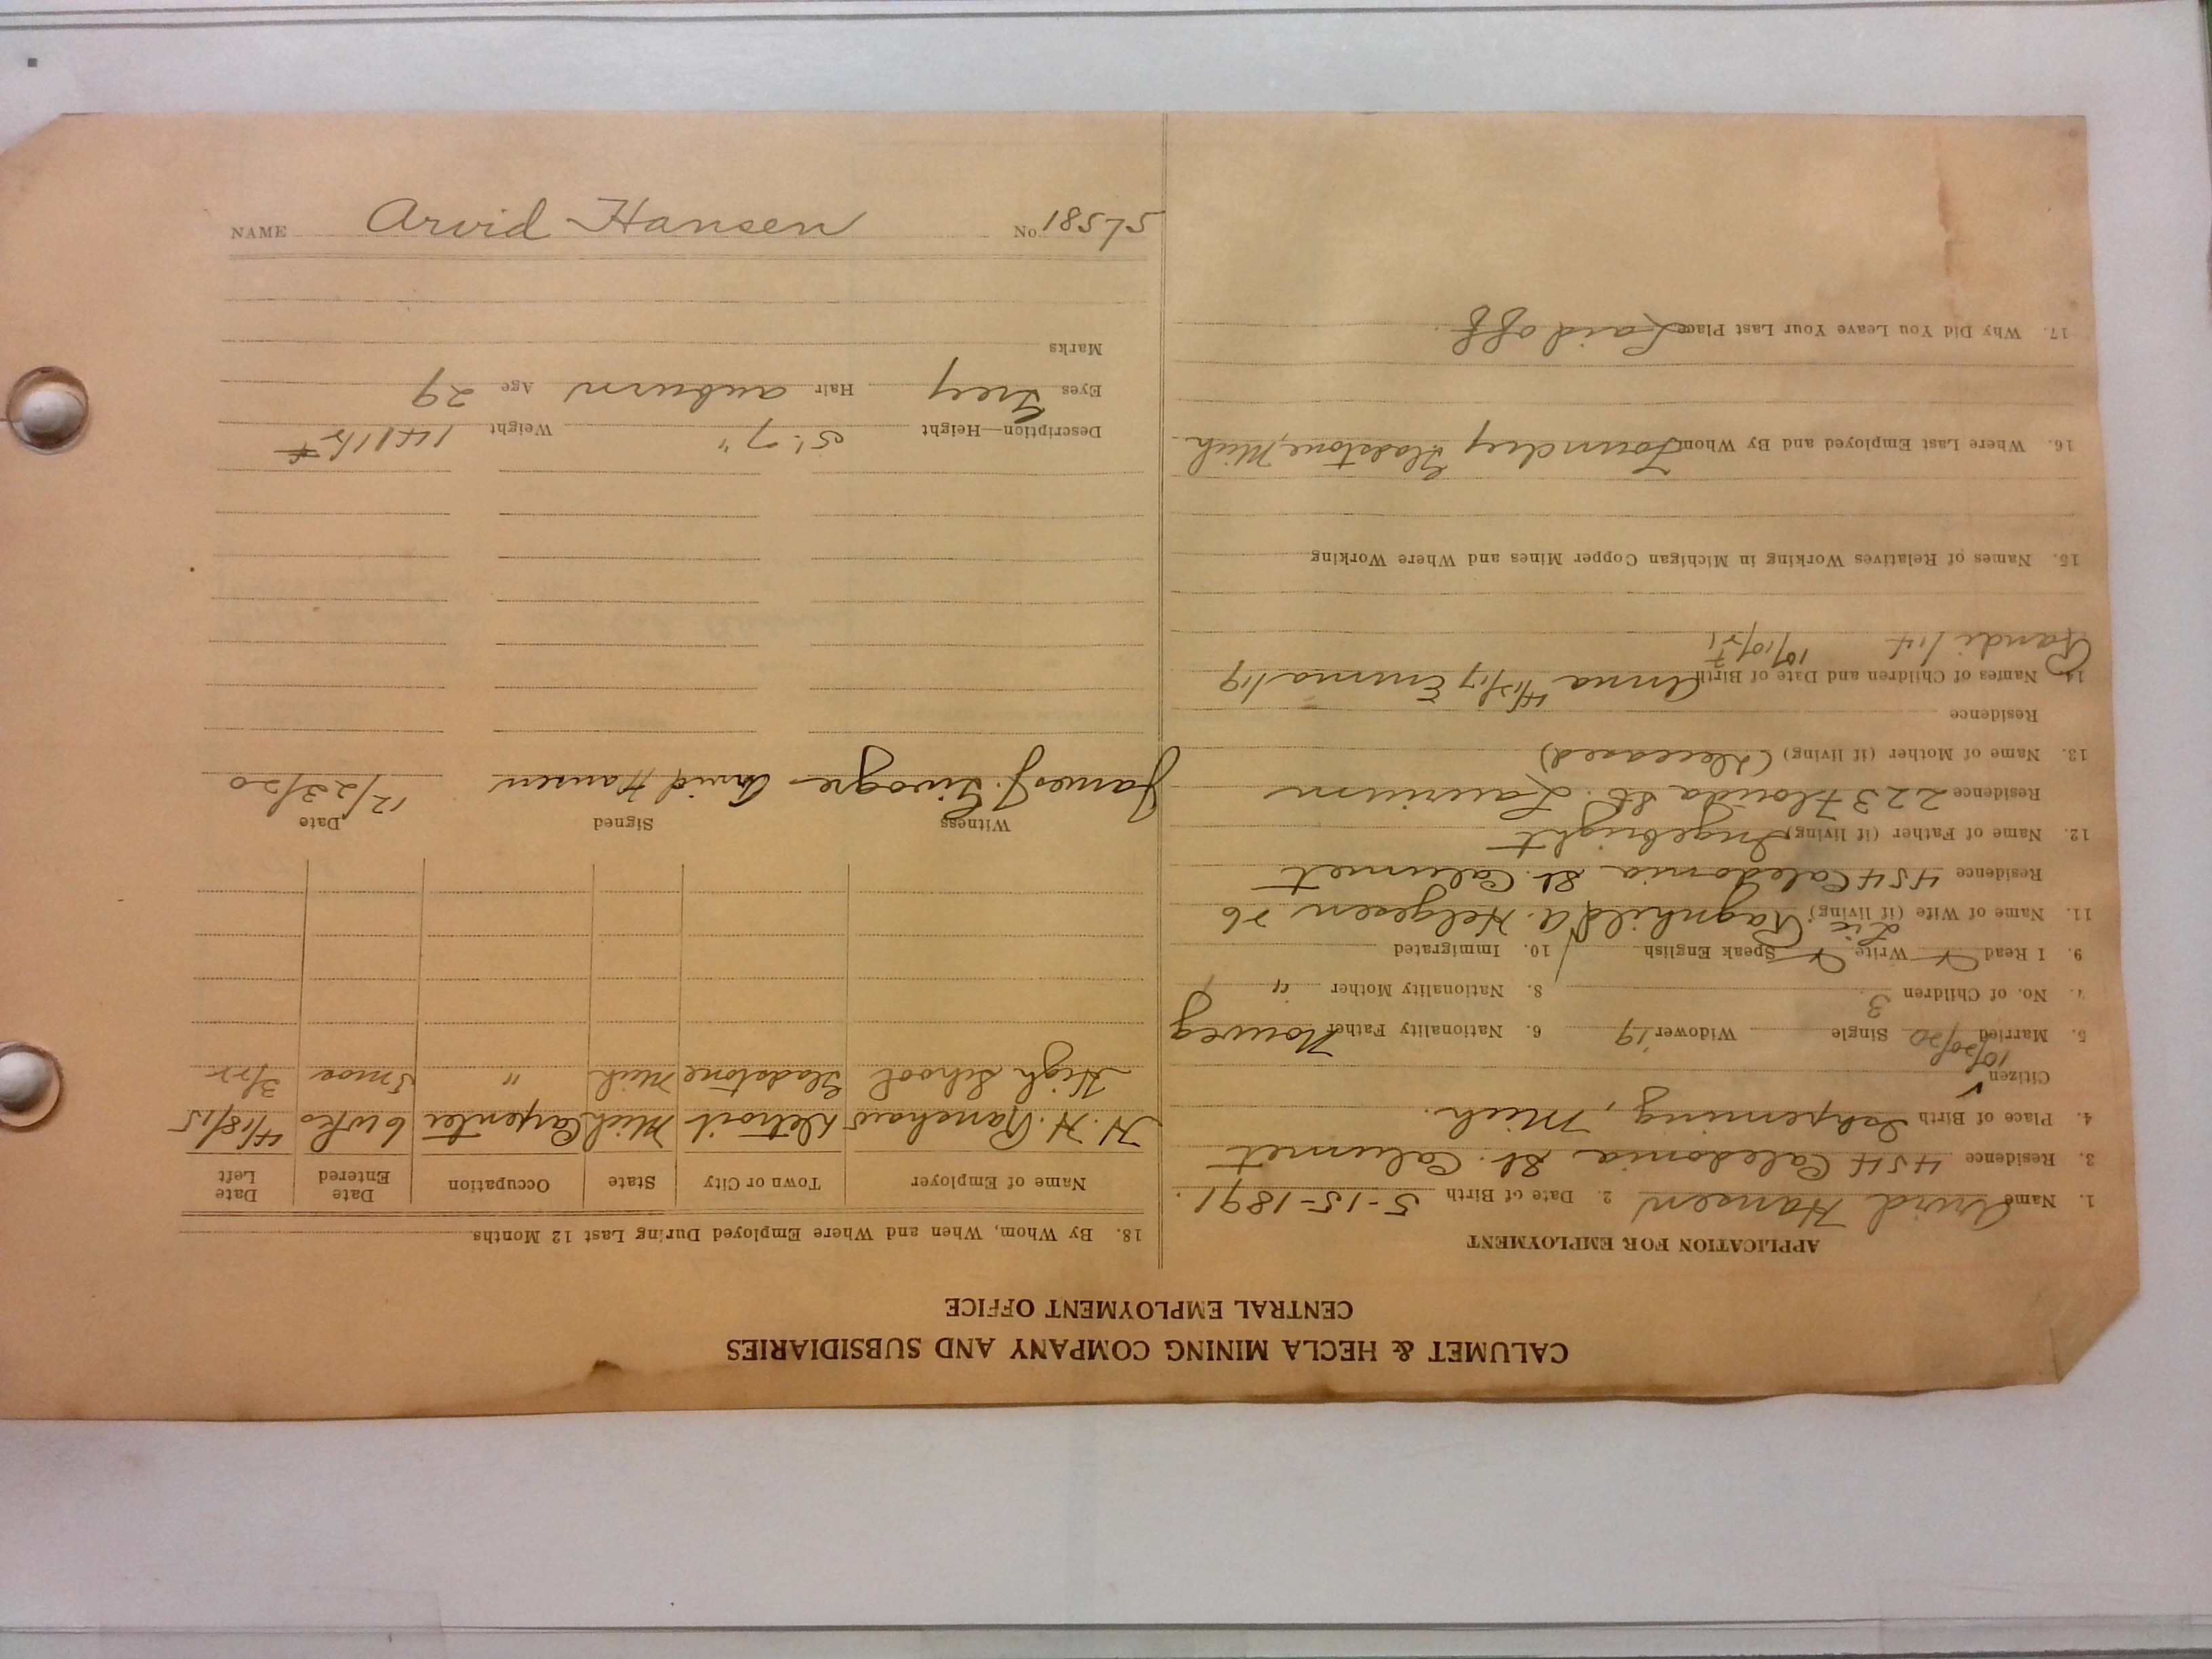 CALUMET & HECLA MINING COMPANY AND SUBSIDIARIES
CENTRAL EMPLOYMENT OFFICE
APPLICATION FOR EMPLOYMENT
1. Name Arvid Hansen 2. Date of Birth 5-15-1891.
3. Residence 454 Caledonia St. Calumet
4. Place of Birth Ishpeming, Mich.
Citizen ✓
10/20/20
5. Married Single Widower '19 6. Nationality Father Norweg
7. No. of Children 3 8. Nationality Mother "
9. I Read Write Speak English 10. Immigrated
11. Name of Wife (if living) Ragnhild A. Helgesen 26
Residence 454 Caledonia St. Calumet
12. Name of Father (if living) Ingebright
Residence 223 Florida St. Laurium
13. Name of Mother (if living) (Deceased)
Residence
14. Names of Children and Date of Birth Anna 4/12/17 Emma 1/19
Randi 1/4 10/10/21
15. Names of Relatives Working in Michigan Copper Mines and Where Working
16. Where Last Employed and By Whom Foundry Gladstone, Mich
17. Why Did You Leave Your Last Place Laid off.
18. By Whom, When and Where Employed During Last 12 Months
Name of Employer Town or City State Occupation Date Entered Date Left
H. H. Detroit Mich Carpenter 6 wks 4/18/15
High School Gladstone Mich " 5 mos 3/22
Witness Signed Date
James J. Arvid Hansen 12/23/20
Description—Height 5' 7" Weight 141 lbs
Eyes Grey Hair auburn Age 29
Marks
NAME Arvid Hansen No. 18575